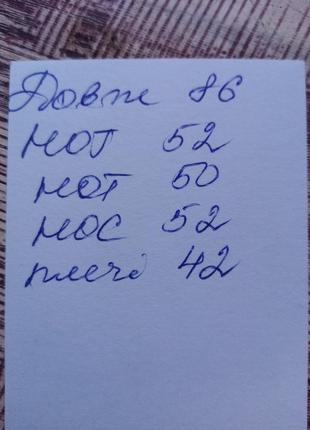 Довж 86
ПОГ 52
ПОТ 50
ПОС 52
плечі 42